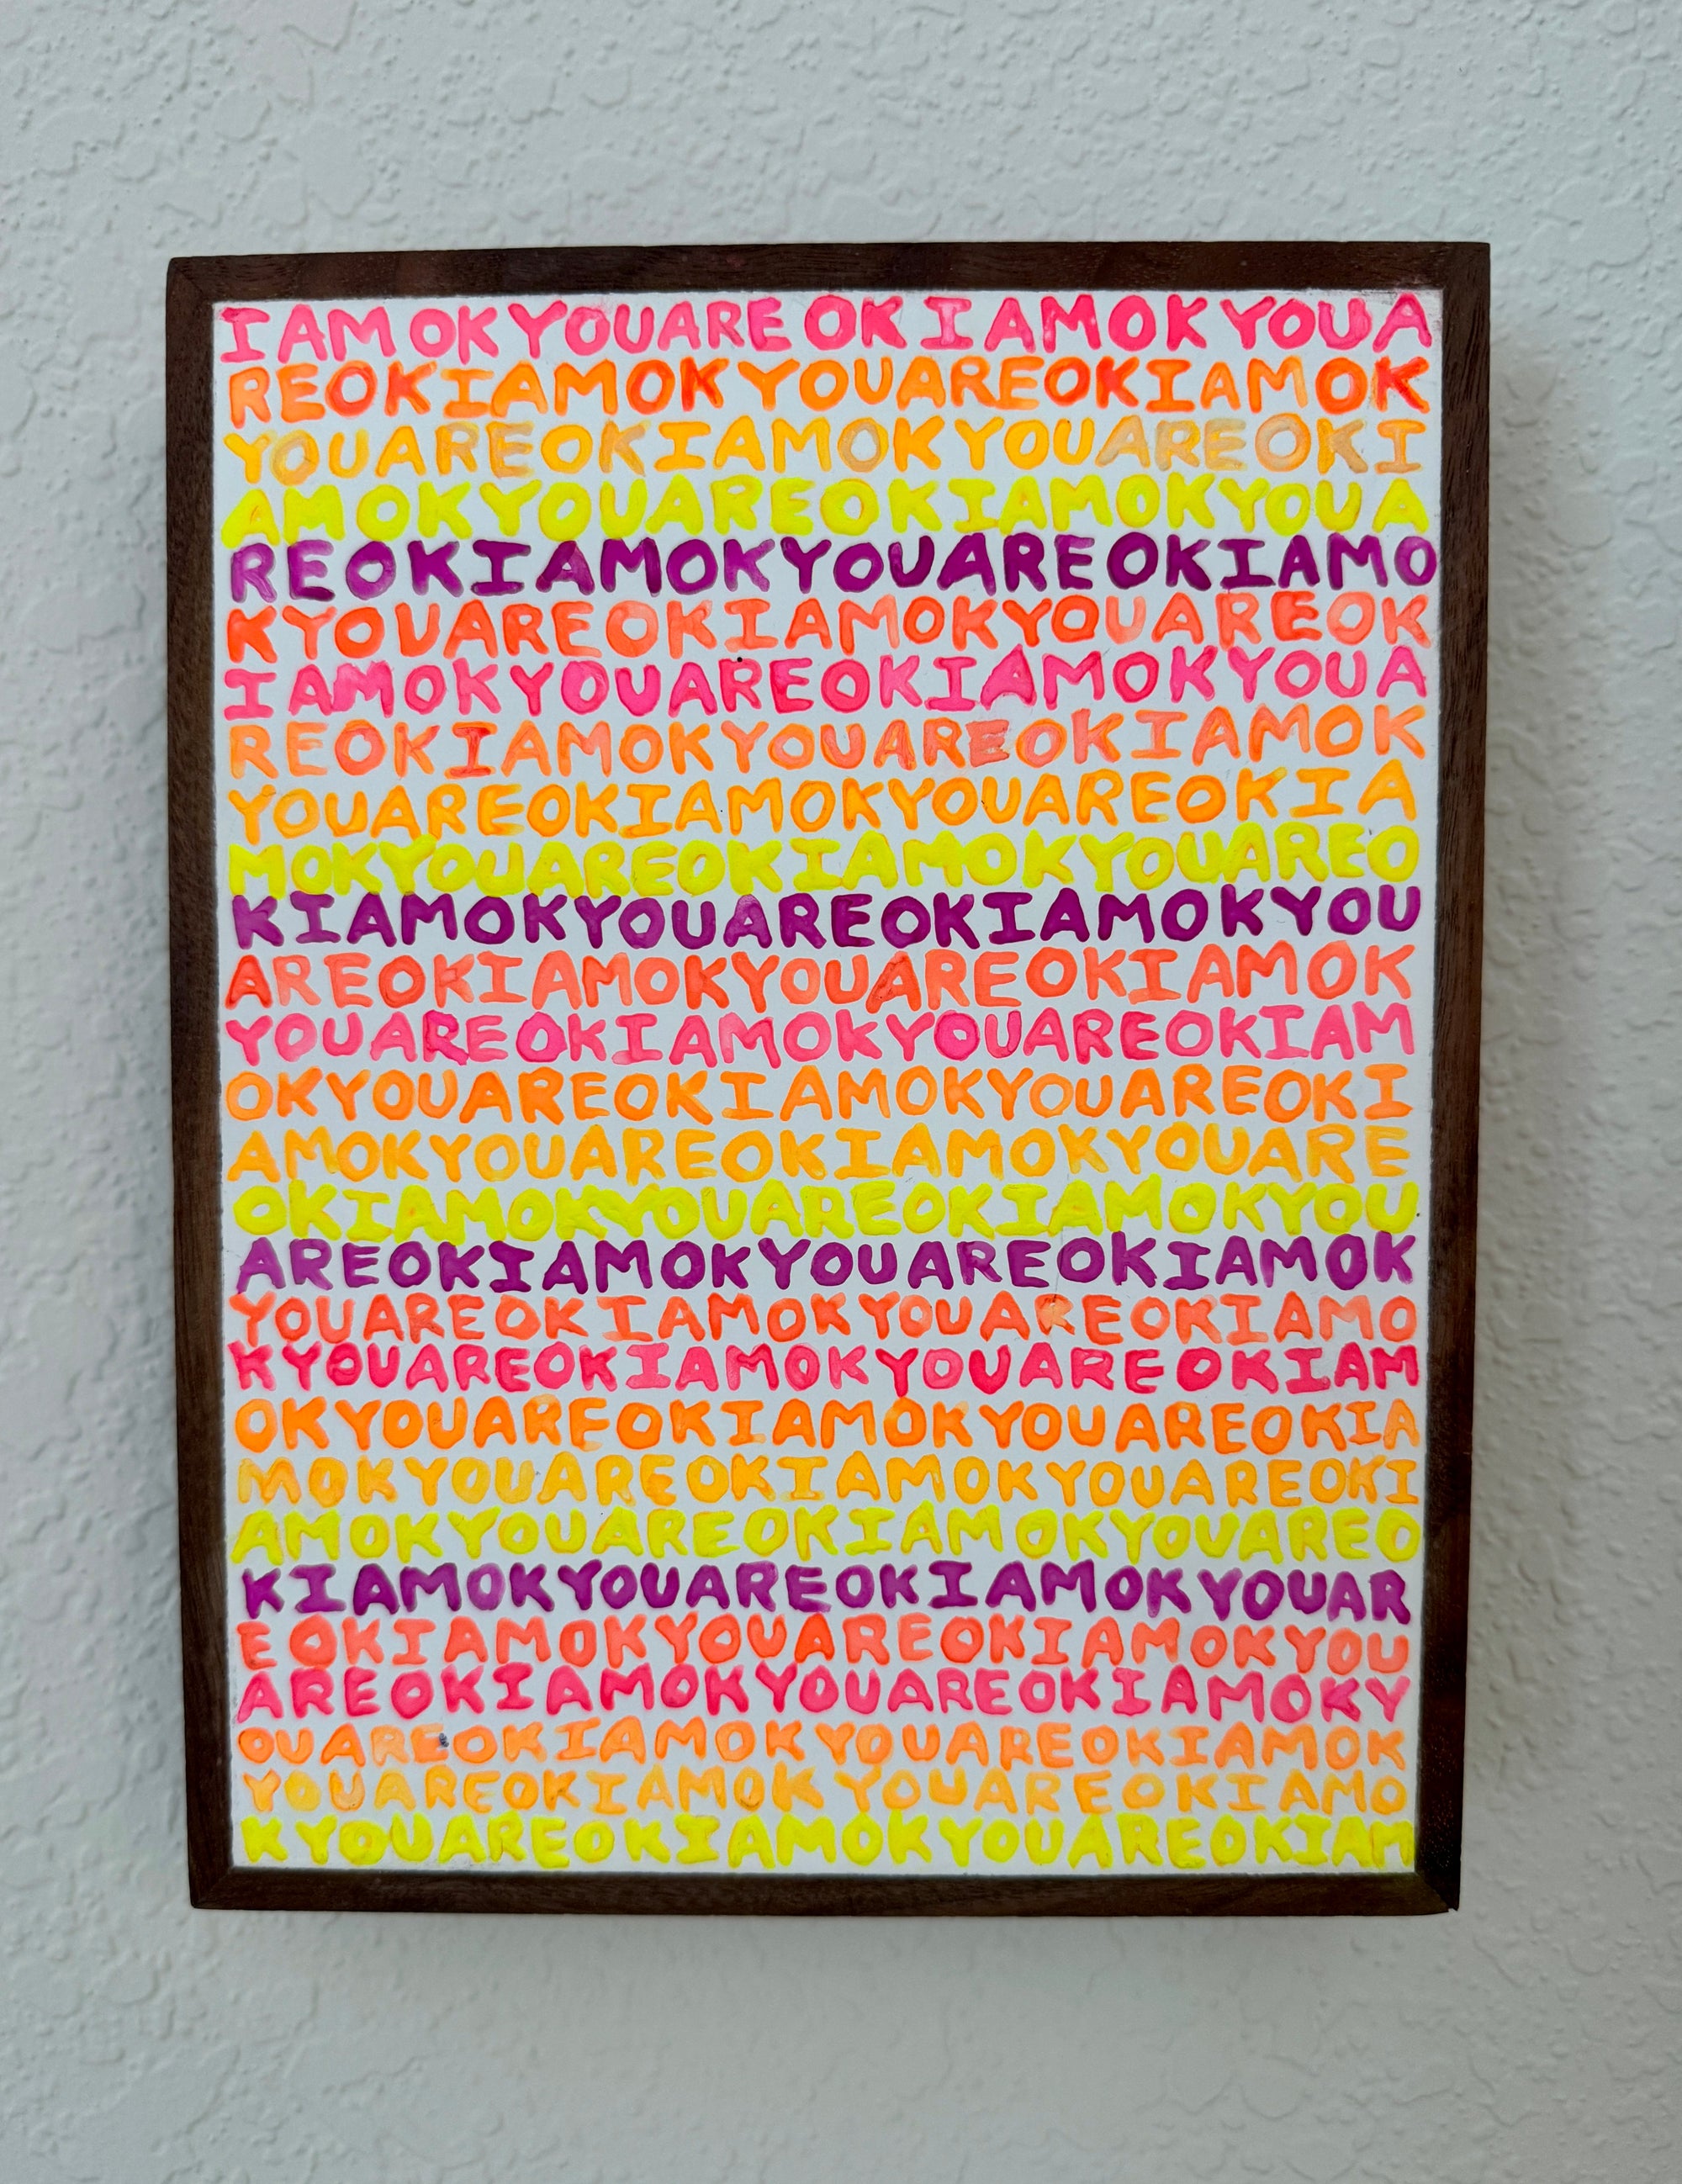 I AM OK YOU ARE OK I AM OK YOU A
REOKIAMOKYOUAREOKIAMOK
YOUAREOKIAMOKYOUAREOKI
AMOKYOUAREOKIAMOKYOUA
REOKIAMOKYOUAREOKIAMO
KYOUAREOKIAMOKYOUAREOK
IAMOKYOUAREOKIAMOKYOUA
REOKIAMOKYOUAREOKIAMOK
YOUAREOKIAMOKYOUAREOKIA
MOKYOUAREOKIAMOKYOUAREO
KIAMOKYOUAREOKIAMOKYOU
AREOKIAMOKYOUAREOKIAMOK
YOUAREOKIAMOKYOUAREOKIAM
OKYOUAREOKIAMOKYOUAREOKI
AMOKYOUAREOKIAMOKYOUARE
OKIAMOKYOUAREOKIAMOKYOU
AREOKIAMOKYOUAREOKIAMOK
YOUAREOKIAMOKYOUAREOKIAMO
KYOUAREOKIAMOKYOUAREOKIAM
OKYOUAREOKIAMOKYOUAREOKIA
MOKYOUAREOKIAMOKYOUAREOKI
AMOKYOUAREOKIAMOKYOUAREO
KIAMOKYOUAREOKIAMOKYOUAR
EOKIAMOKYOUAREOKIAMOKYOU
AREOKIAMOKYOUAREOKIAMOKY
OUAREOKIAMOKYOUAREOKIAMOK
YOUAREOKIAMOKYOUAREOKIAMO
KYOUAREOKIAMOKYOUAREOKIAM